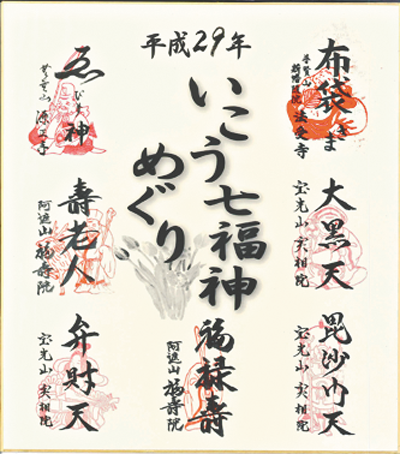 平成29年
いこう七福神
めぐり
布袋さま
普賢山
新幡随院
法受寺
大黒天
宝光山 実相院
毘沙門天
宝光山 実相院
福禄壽
阿遮山 福壽院
ゑびす神
源正寺
壽老人
阿遮山 福壽院
弁財天
宝光山 実相院